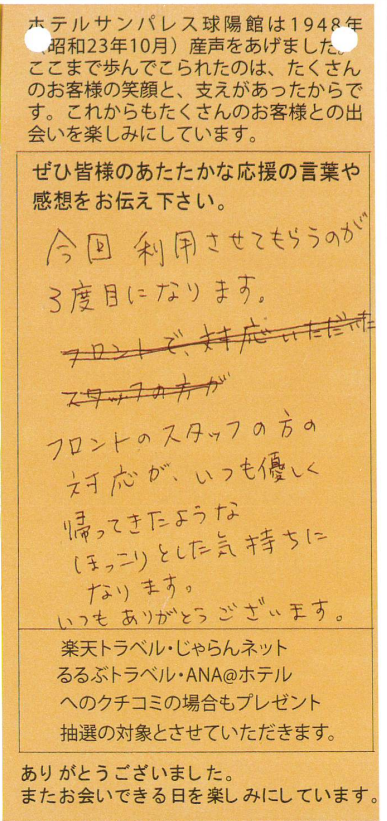 ホテルサンパレス球陽館は1948年
（昭和23年10月）産声をあげました。
ここまで歩んでこられたのは、たくさん
のお客様の笑顔と、支えがあったからで
す。これからもたくさんのお客様との出
会いを楽しみにしています。
ぜひ皆様のあたたかな応援の言葉や
感想をお伝え下さい。
今回 利用させてもらうのが
3度目になります。
フロントで、対応いただいた
スタッフの方が
フロントのスタッフの方の
対応が、いつも優しく
帰ってきたような
ほっこりとした気持ちに
なります。
いつもありがとうございます。
楽天トラベル・じゃらんネット
るるぶトラベル・ANA@ホテル
へのクチコミの場合もプレゼント
抽選の対象とさせていただきます。
ありがとうございました。
またお会いできる日を楽しみにしています。